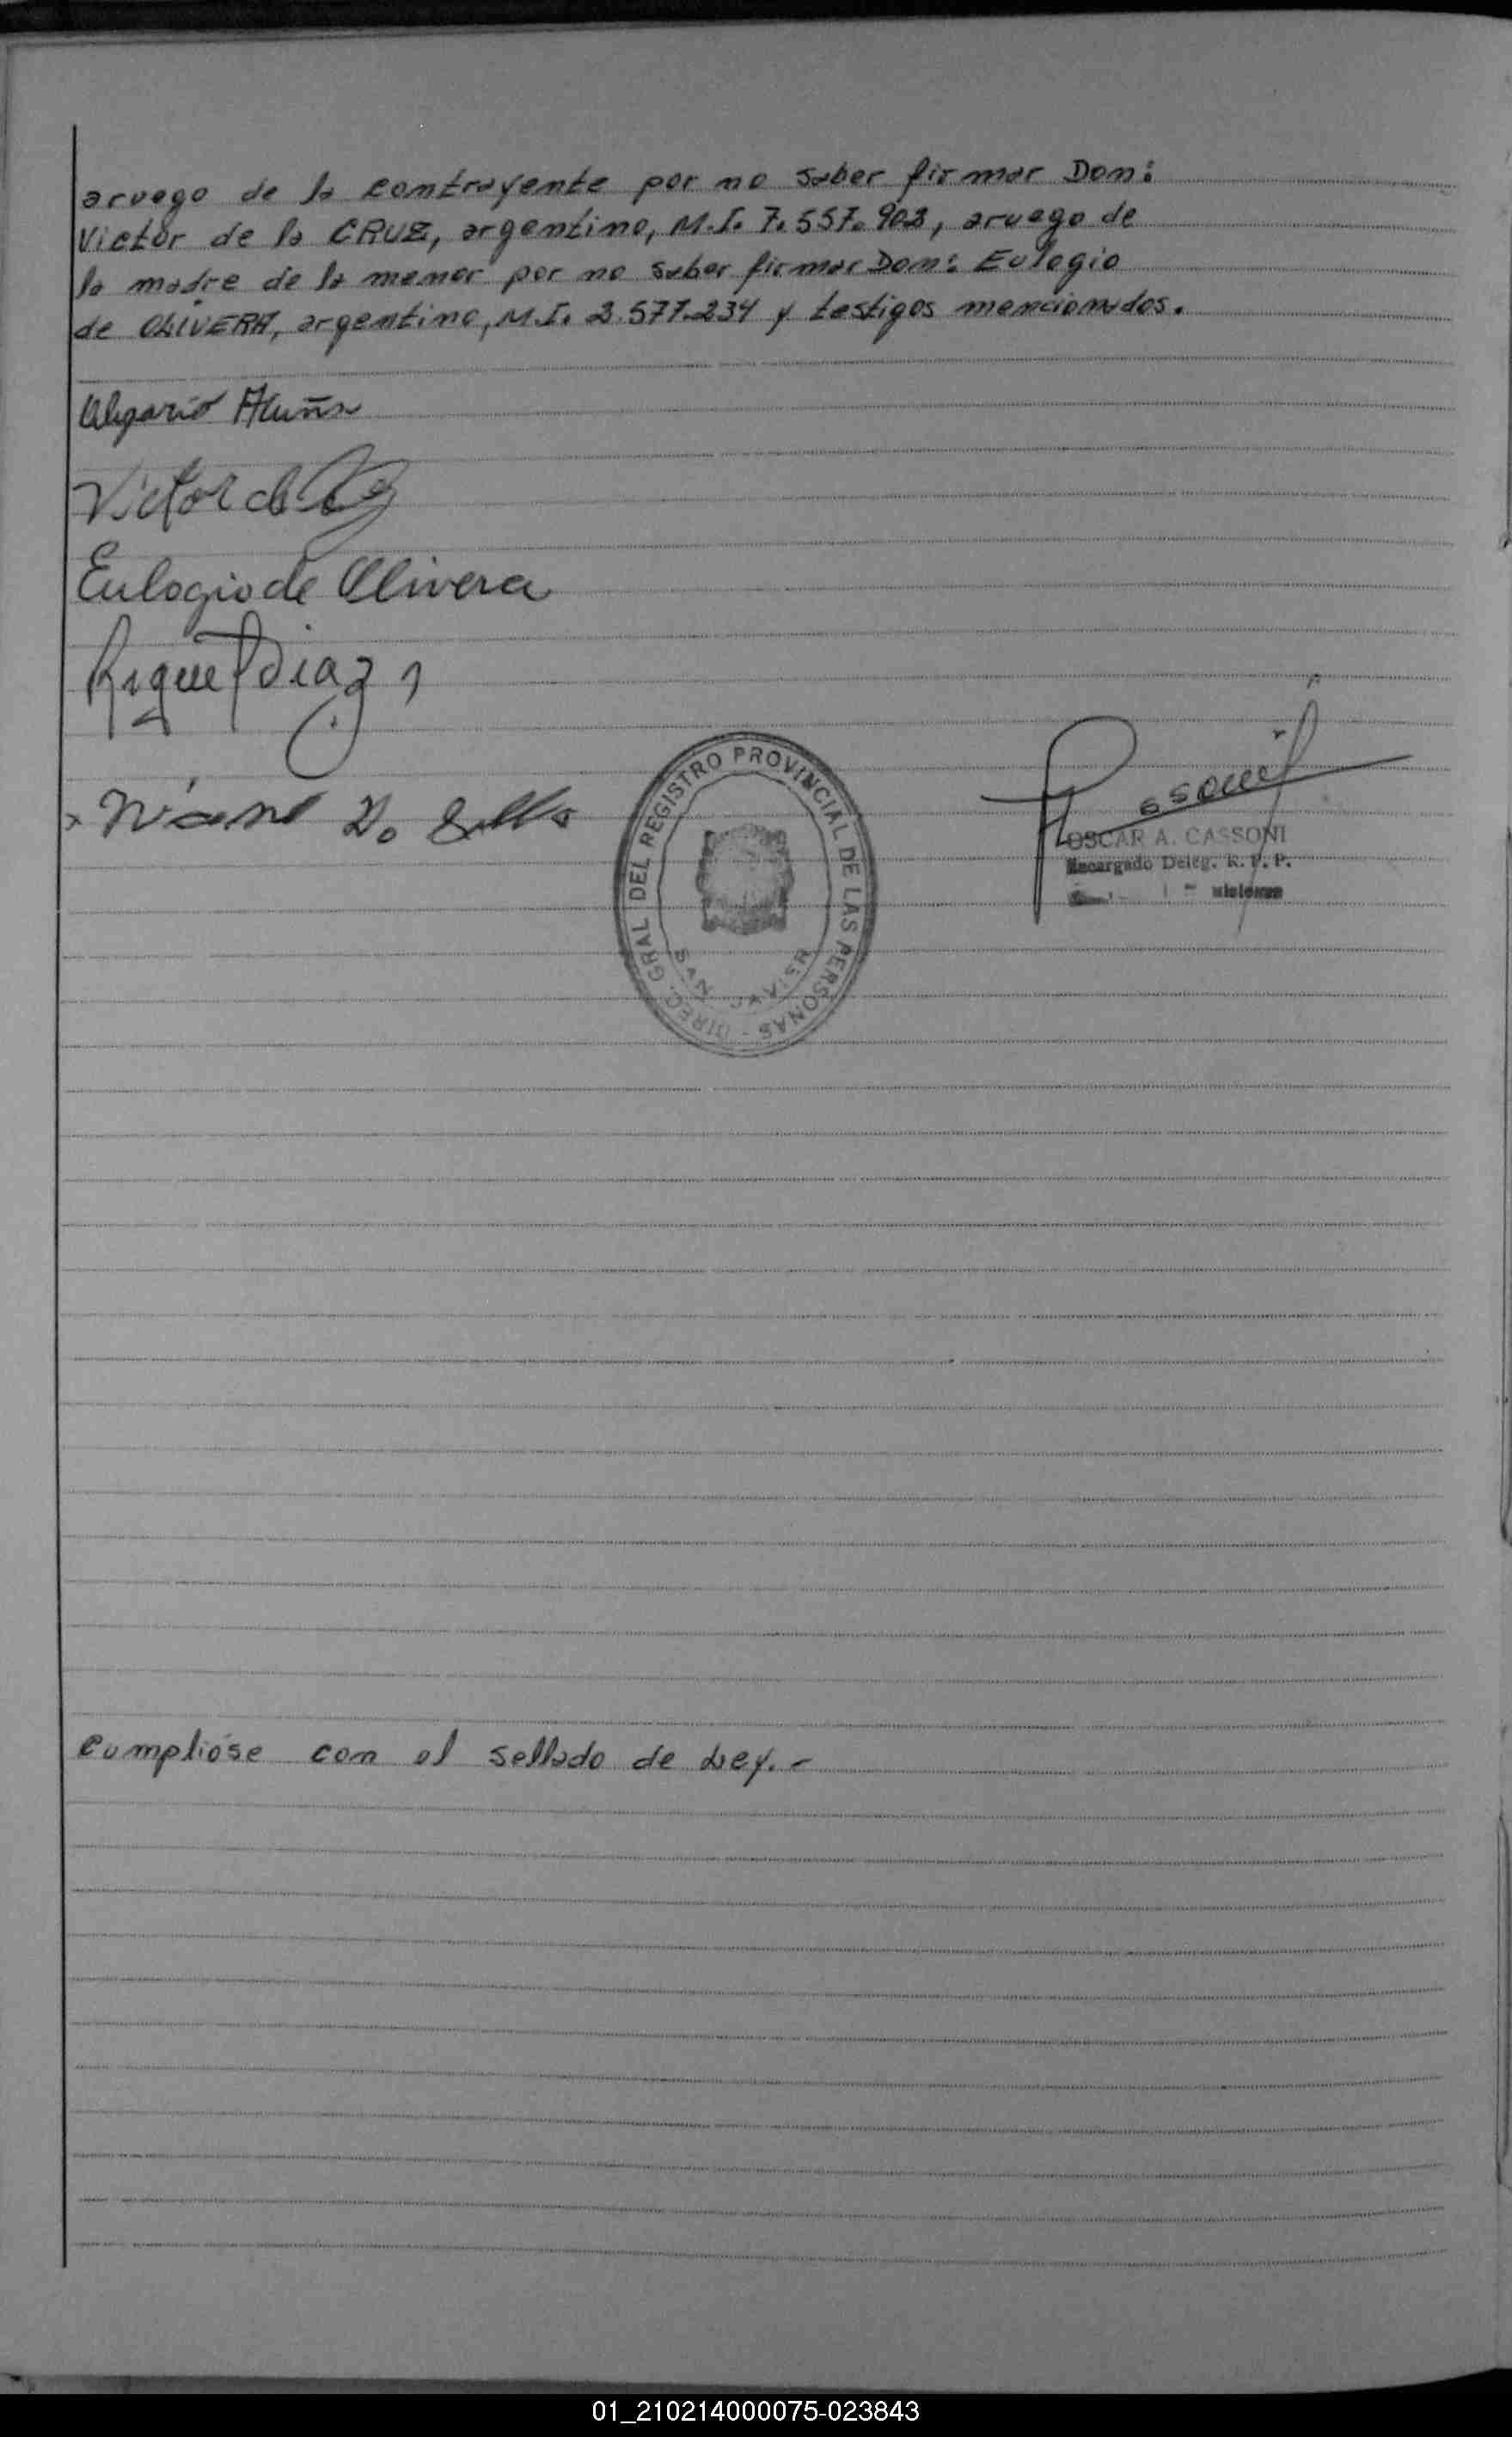 aruego de la contrayente por no saber firmar Don:
Victor de la CRUZ, argentino, M.I. 7.557.903, aruego de
la madre de la menor por no saber firmar Don: Eulogio
de OLIVERA, argentino, M.I. 2.577.234 y testigos mencionados.
Olegario Acuña
Victor de la
Eulogio de Olivera
Diaz
DIREC. GRAL DEL REGISTRO PROVINCIAL DE LAS PERSONAS -
SAN JAVIER
OSCAR A. CASSONI
Encargado Deleg. R. P. P.
Misiones
Cumplióse con el sellado de Ley.-
01_210214000075-023843